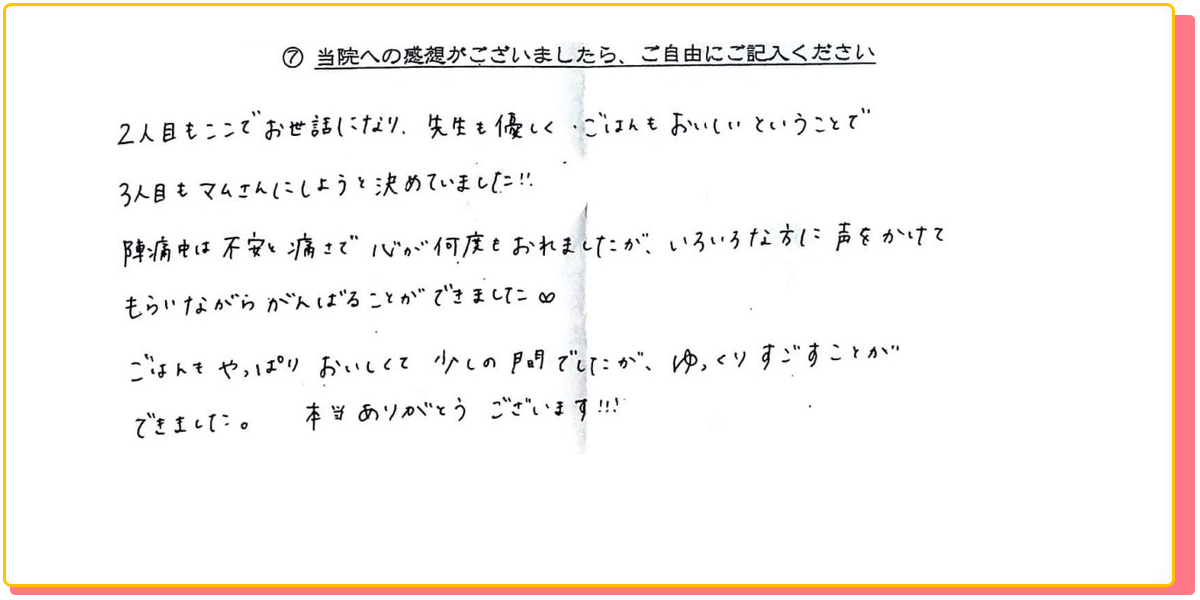 ⑦ 当院への感想がございましたら、ご自由にご記入ください
2人目もここでお世話になり、先生も優しく、ごはんもおいしいということで
3人目もマムさんにしようと決めていました!!
陣痛中は不安と痛さで心が何度もおれましたが、いろいろな方に声をかけて
もらいながらがんばることができました∞
ごはんもやっぱりおいしくて少しの間でしたが、ゆっくりすごすことが
できました。 本当ありがとうございます!!!